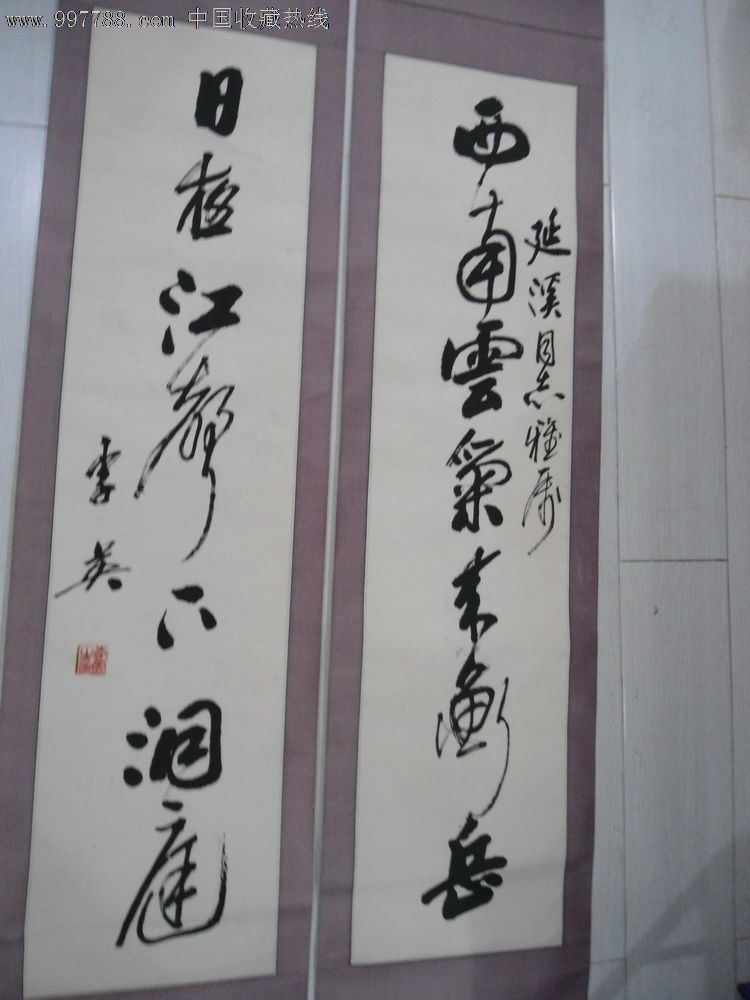 www.997788.com 中国收藏热线
西南雲氣来衡岳
延溪同志雅属
日夜江聲下洞庭
李英